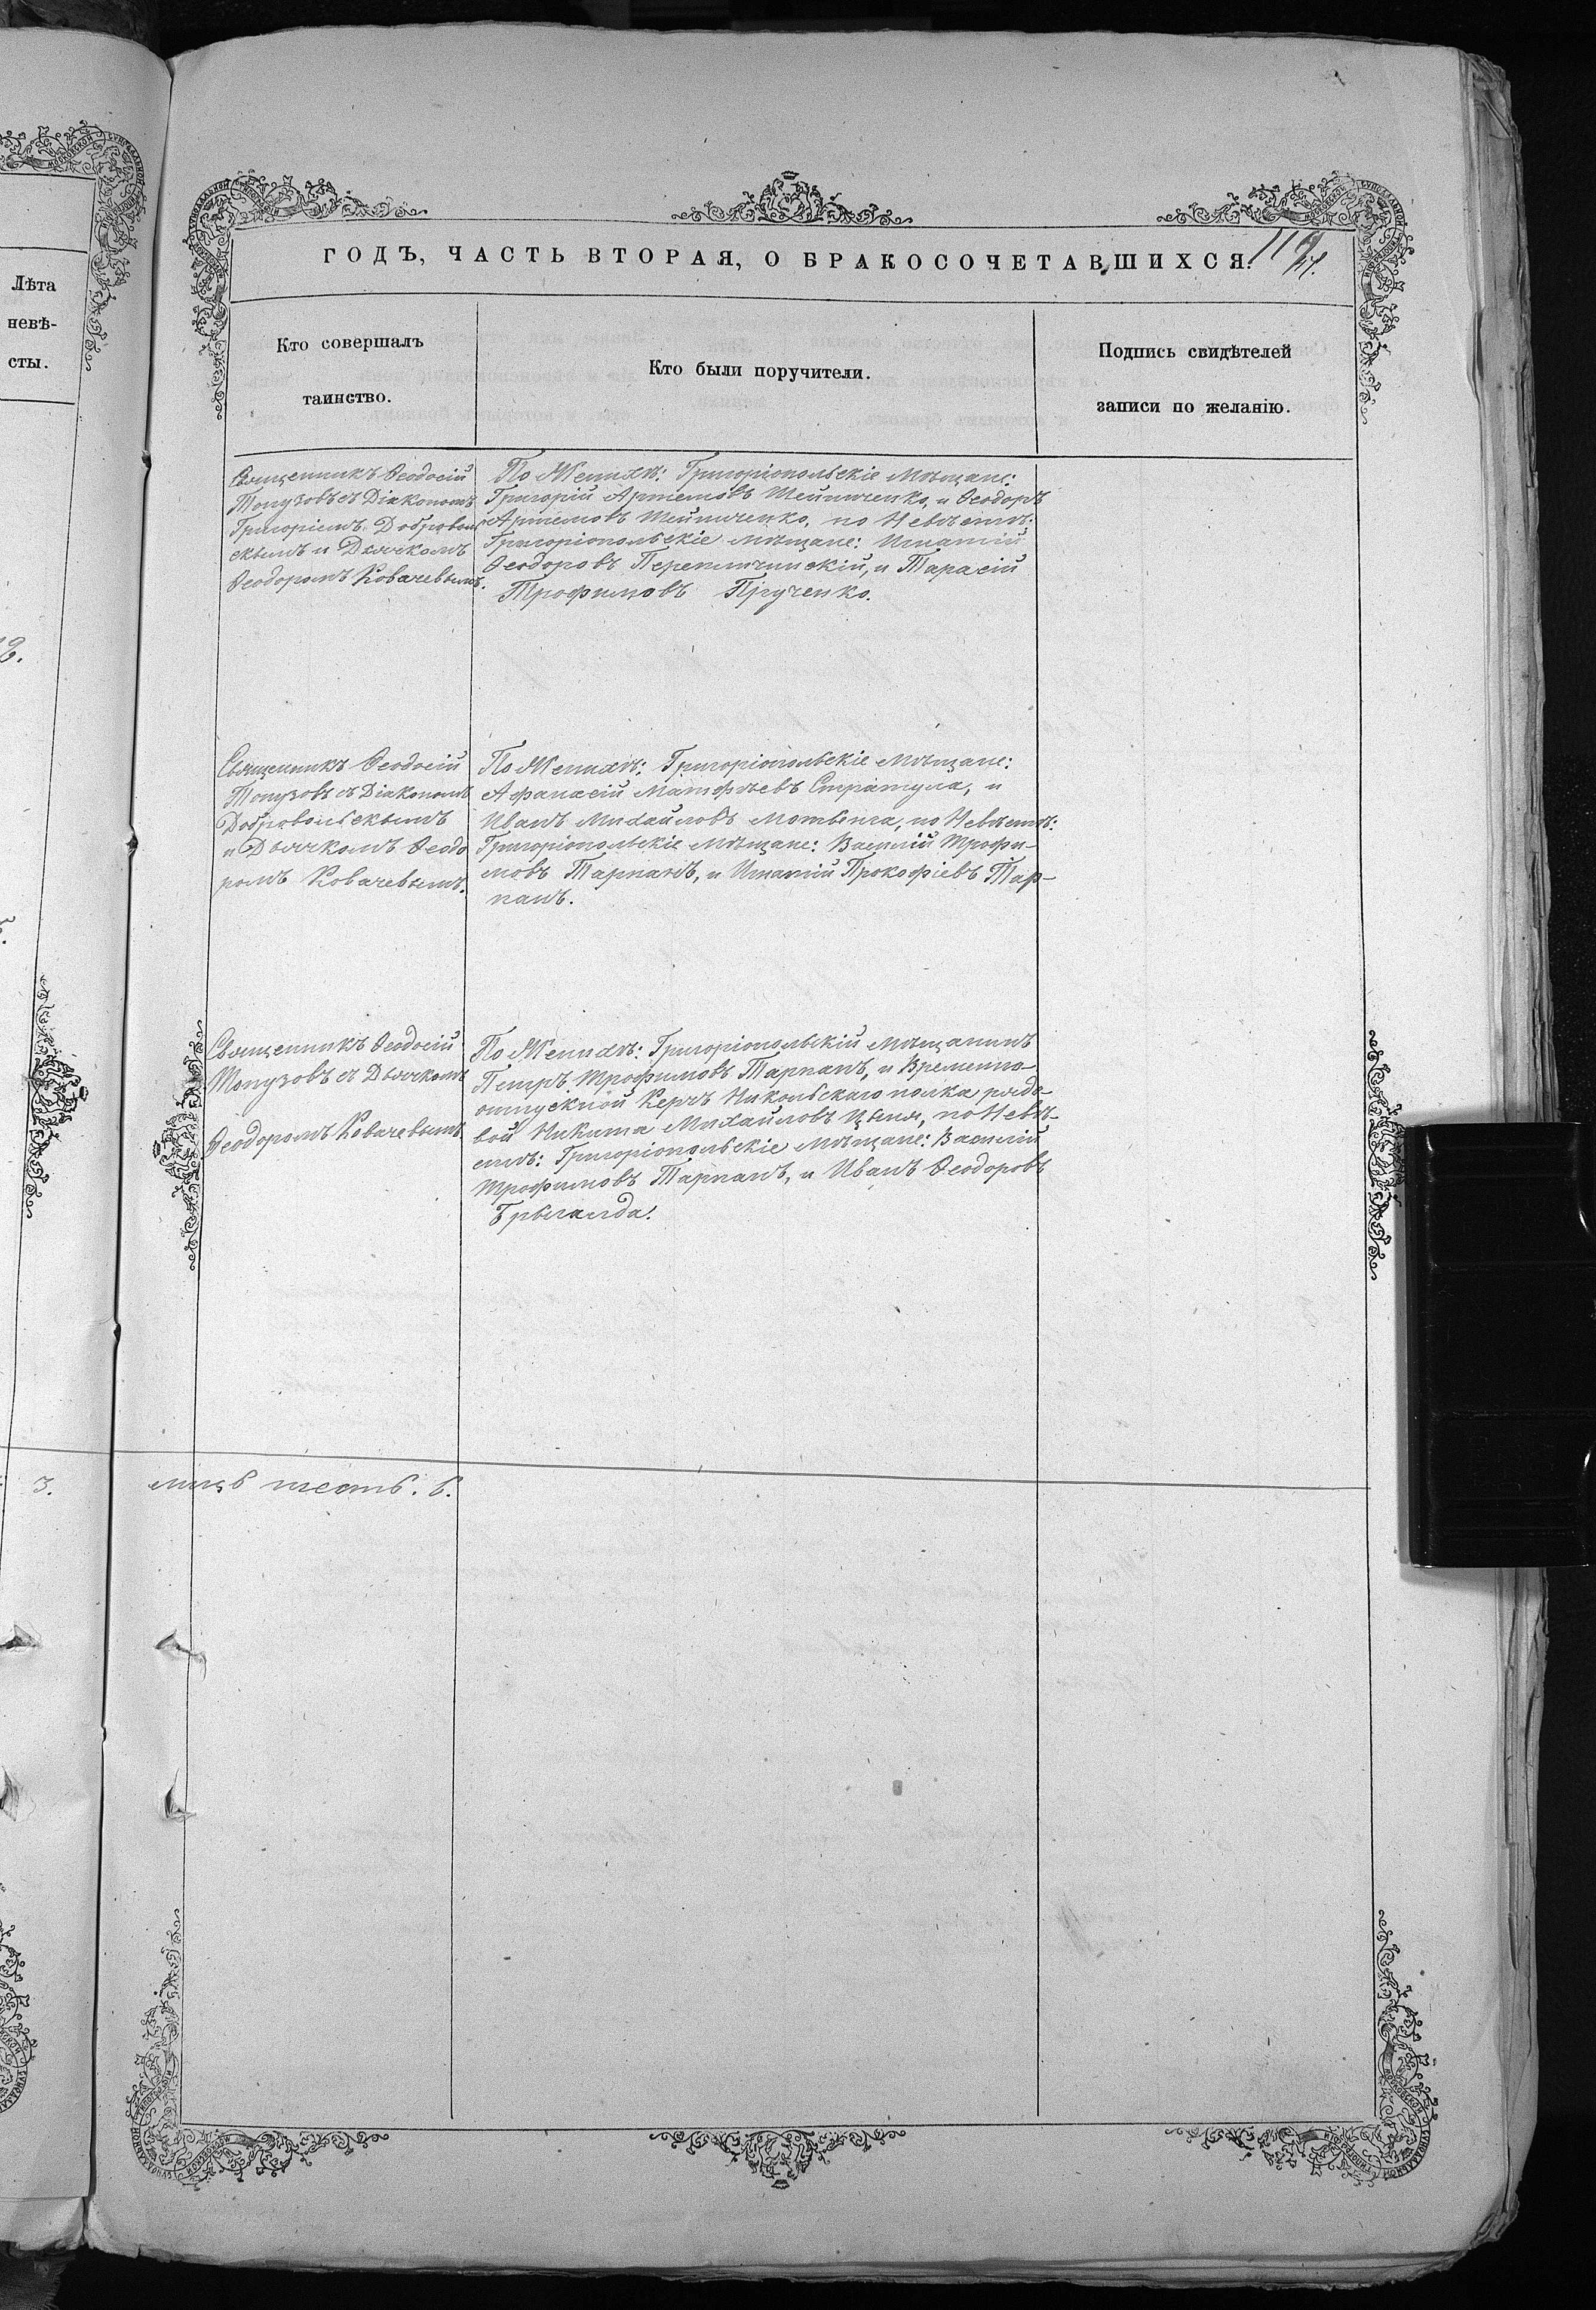 Лѣта
невѣ-
сты.
3.
ГОДЪ, ЧАСТЬ ВТОРАЯ, О БРАКОСОЧЕТАВШИХСЯ.
Кто совершалъ
таинство.
Кто были поручители.
Подпись свидѣтелей
записи по желанію.
Священникъ Ѳеодосій
Топузовъ съ Діакономъ
Григоріемъ Доброволь
скимъ и Дьячкомъ
Ѳеодоромъ Ковачевымъ.
По Женихѣ: Григоріопольскіе Мѣщане:
Григорій Артемовъ Шейниченко, и Ѳеодоръ
Артемовъ Шейниченко, по Невѣстѣ:
Григоріопольскіе Мѣщане: Игнатій
Ѳеодоровъ Перепличинскій, и Тарасій
Трофимовъ Прученко.
Священникъ Ѳеодосій
Топузовъ съ Діакономъ
Добровольскимъ
и Дьячкомъ Ѳеодо
ромъ Ковачевымъ.
По Женихѣ: Григоріопольскіе Мѣщане:
Афанасій Матфѣевъ Стратула, и
Иванъ Михайловъ Мотынга, по Невѣстѣ:
Григоріопольскіе Мѣщане: Василій Трофи-
мовъ Тарпанъ, и Игнатій Прокофіевъ Тар-
панъ.
Священникъ Ѳеодосій
Топузовъ съ Дьячкомъ
Ѳеодоромъ Ковачевымъ
По Женихѣ: Григоріопольскій Мѣщанинъ
Петръ Трофимовъ Тарпанъ, и Временно-
отпускной Керчь Никольскаго полка рядо-
вой Никита Михайловъ Цыня, по Невѣ-
стѣ: Григоріопольскіе Мѣщане: Василій
Трофимовъ Тарпанъ, и Иванъ Ѳеодоровъ
Брыганда.
лицъ шесть. 6.